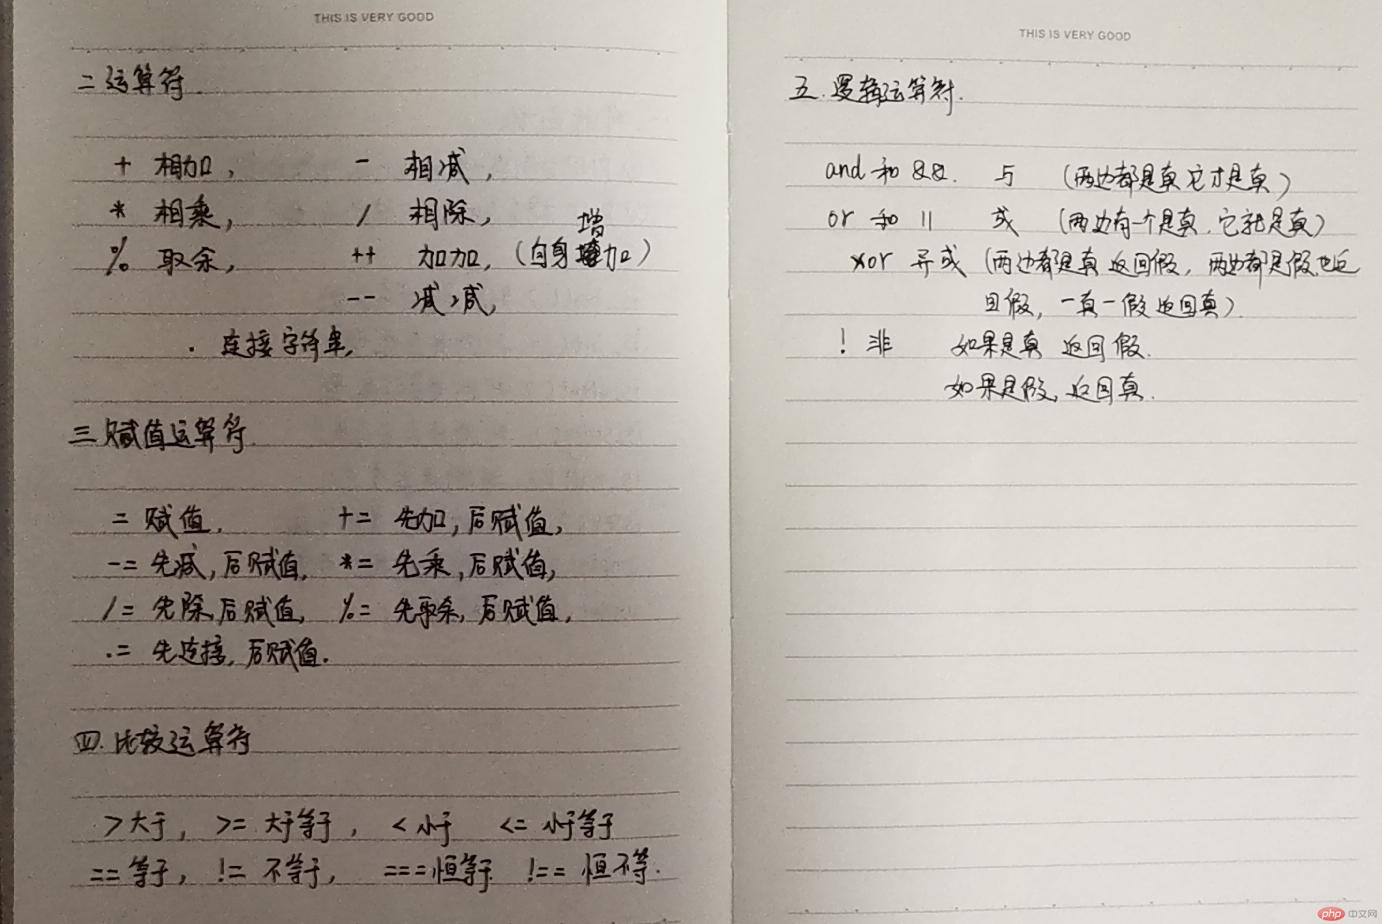 THIS IS VERY GOOD
二 运算符.
+ 相加, - 相减,
* 相乘, / 相除,
% 取余, ++ 加加, (自身增加)
-- 减减,
. 连接字符串,
三 赋值运算符.
= 赋值, += 先加,后赋值,
-= 先减,后赋值, *= 先乘,后赋值,
/= 先除,后赋值, %= 先取余,后赋值,
.= 先连接,后赋值.
四.比较运算符
>大于, >= 大于等于, <小于 <= 小于等于
==等于, != 不等于, ===恒等于 !== 恒不等.
THIS IS VERY GOOD
五.逻辑运算符.
and 和 &&. 与 (两边都是真它才是真)
or 和 || 或 (两边有一个是真,它就是真)
xor 异或 (两边都是真 返回假, 两边都是假,也返
回假, 一真一假 返回真).
! 非 如果是真 返回假.
如果是假,返回真.
php 中文网